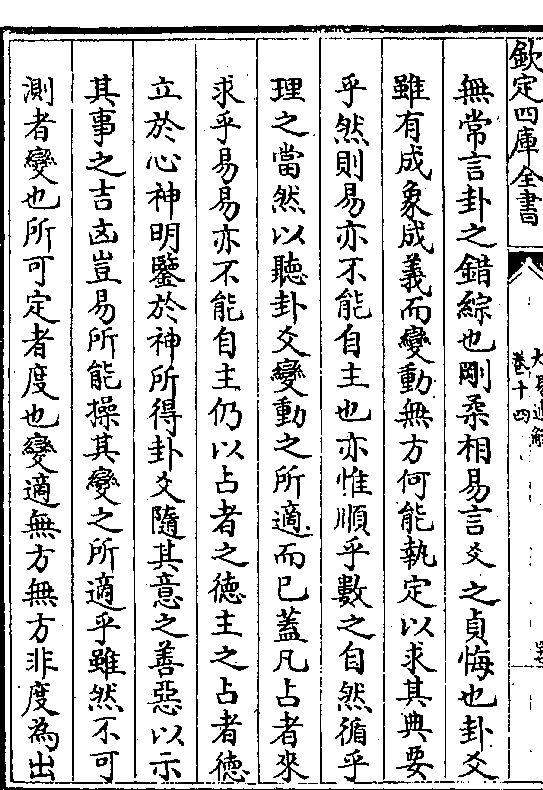 欽定四庫全書
大易通解
卷十四
無常言卦之錯綜也剛柔相易言爻之貞悔也卦爻
雖有成象成義而變動無方何能執定以求其典要
乎然則易亦不能自主也亦惟順乎數之自然循乎
理之當然以聽卦爻變動之所適而已蓋凡占者來
求乎易易亦不能自主仍以占者之德主之占者德
立於心神明鑒於神所得卦爻隨其意之善惡以示
其事之吉凶豈易所能操其變之所適乎雖然不可
測者變也所可定者度也變適無方無方非度為出